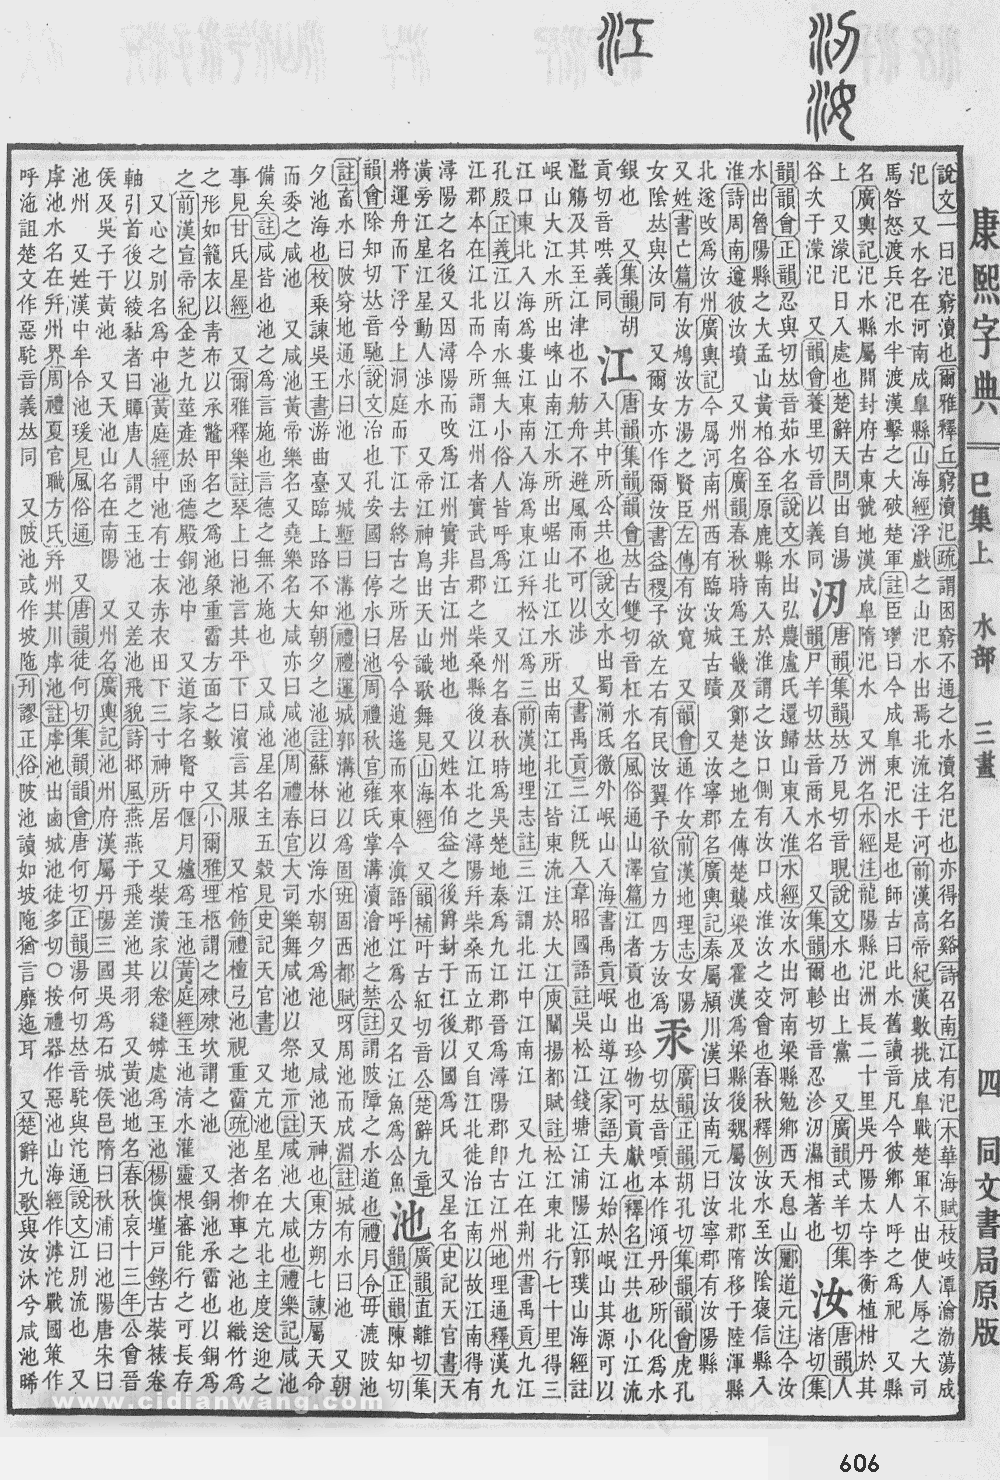 江
汈汝
康熙字典
巳集上 水部 三畫
四 同文書局原版
說文一曰汜窮瀆也爾雅釋丘窮瀆汜疏謂困窮不通之水瀆名汜也亦得名谿詩召南江有汜木華海賦枝岐潭瀹渤蕩成
汜 又水名在河南成皐縣山海經浮戲之山汜水出焉北流注于河前漢高帝紀漢數挑成皐戰楚軍不出使人辱之大司
馬咎怒渡兵汜水半渡漢擊之大破楚軍註臣瓚曰今成皐東汜水是也師古曰此水舊讀音凡今彼鄉人呼之爲祀 又縣
名廣輿記汜水縣屬開封府古東虢地漢成皐隋汜水 又洲名水經注龍陽縣汜洲長二十里吳丹陽太守李衡植柑於其
上 又濛汜日入處也楚辭天問出自湯
谷次于濛汜 又韻會養里切音以義同
汈
唐韻集韻𠀤乃見切音晛說文水也出上黨 又廣韻式羊切集
韻尸羊切𠀤音商水名 又集韻爾軫切音忍沴汈濕相著也
汝
唐韻人
渚切集
韻韻會正韻忍與切𠀤音茹水名說文水出弘農盧氏還歸山東入淮水經汝水出河南梁縣勉鄉西天息山酈道元注今汝
水出魯陽縣之大盂山黃柏谷至原鹿縣南入於淮謂之汝口側有汝口戍淮汝之交會也春秋釋例汝水至汝陰褒信縣入
淮詩周南遵彼汝墳 又州名廣韻春秋時爲王畿及鄭楚之地左傳楚襲梁及霍漢爲梁縣後魏屬汝北郡隋移于陸渾縣
北遂改爲汝州廣輿記今屬河南州西有臨汝城古蹟 又汝寧郡名廣輿記秦屬潁川漢曰汝南元曰汝寧郡有汝陽縣
又姓書亡篇有汝鳩汝方湯之賢臣左傳有汝寬 又韻會通作女前漢地理志女陽
女陰𠀤與汝同 又爾女亦作爾汝書益稷予欲左右有民汝翼予欲宣力四方汝爲
汞
廣韻正韻胡孔切集韻韻會虎孔
切𠀤音嗊本作澒丹砂所化爲水
銀也 又集韻胡
貢切音哄義同
江
唐韻集韻韻會𠀤古雙切音杠水名風俗通山澤篇江者貢也出珍物可貢獻也釋名江共也小江流
入其中所公共也說文水出蜀湔氐徼外岷山入海書禹貢岷山導江家語夫江始於岷山其源可以
濫觴及其至江津也不舫舟不避風雨不可以涉 又書禹貢三江旣入韋昭國語註吳松江錢塘江浦陽江郭璞山海經註
岷山大江水所出崍山南江水所出崌山北江水所出南江北江皆東流注於大江庾闡揚都賦註松江東北行七十里得三
江口東北入海爲婁江東南入海爲東江幷松江爲三前漢地理志註三江謂北江中江南江 又九江在荆州書禹貢九江
孔殷正義江以南水無大小俗人皆呼爲江 又州名春秋時爲吳楚地秦爲九江郡晉爲潯陽郡卽古江州地理通釋漢九
江郡本在江北而今所謂江州者實武昌郡之柴桑縣後以江北之潯陽幷柴桑而立郡又自江北徙治江南以故江南得有
潯陽之名後又因潯陽而改爲江州實非古江州地也 又姓本伯益之後爵封于江後以國爲氏 又星名史記天官書天
潢旁江星江星動人涉水 又帝江神鳥出天山識歌舞見山海經 又韻補叶古紅切音公楚辭九章
將運舟而下浮兮上洞庭而下江去終古之所居兮今逍遙而來東今滇語呼江爲公又名江魚爲公魚
池
廣韻直離切集
韻正韻陳知切
韻會除知切𠀤音馳說文治也孔安國曰停水曰池周禮秋官雍氏掌溝瀆澮池之禁註謂陂障之水道也禮月令毋漉陂池
註畜水曰陂穿地通水曰池 又城塹曰溝池禮禮運城郭溝池以爲固班固西都賦呀周池而成淵註城有水曰池 又朝
夕池海也枚乘諫吳王書游曲臺臨上路不知朝夕之池註蘇林曰以海水朝夕爲池 又咸池天神也東方朔七諫屬天命
而委之咸池 又咸池黃帝樂名又堯樂名大咸亦曰咸池周禮春官大司樂舞咸池以祭地示註咸池大咸也禮樂記咸池
備矣註咸皆也池之爲言施也言德之無不施也 又咸池星名主五穀見史記天官書 又亢池星名在亢北主度送迎之
事見甘氏星經 又爾雅釋樂註琴上曰池言其平下曰濵言其服 又棺飾禮檀弓池視重霤疏池者柳車之池也織竹爲
之形如籠衣以靑布以承鼈甲名之爲池象重霤方面之數 又小爾雅埋柩謂之肂肂坎謂之池 又銅池承霤也以銅爲
之前漢宣帝紀金芝九莖產於函德殿銅池中 又道家名腎中偃月爐爲玉池黃庭經玉池淸水灌靈根審能行之可長存
又心之別名爲中池黃庭經中池有士衣赤衣田下三寸神所居 又裝潢家以卷縫罅處爲玉池楊愼墐戸錄古裝裱卷
軸引首後以綾黏者曰䚆唐人謂之玉池 又差池飛貌詩邶風燕燕于飛差池其羽 又黃池地名春秋哀十三年公會晉
侯及吳子于黃池 又天池山名在南陽 又州名廣輿記池州府漢屬丹陽三國吳爲石城侯邑隋曰秋浦曰池陽唐宋曰
池州 又姓漢中牟令池瑗見風俗通 又唐韻徒何切集韻韻會唐何切正韻湯何切𠀤音駝與沱通說文江別流也 又
虖池水名在幷州界周禮夏官職方氏幷州其川虖池註虖池出鹵城池徒多切○按禮器作惡池山海經作滹沱戰國策作
呼沲詛楚文作惡駝音義𠀤同 又陂池或作坡陁刊謬正俗陂池讀如坡陁猶言靡迤耳 又楚辭九歌與汝沐兮咸池晞
www.cidianwang.com
606